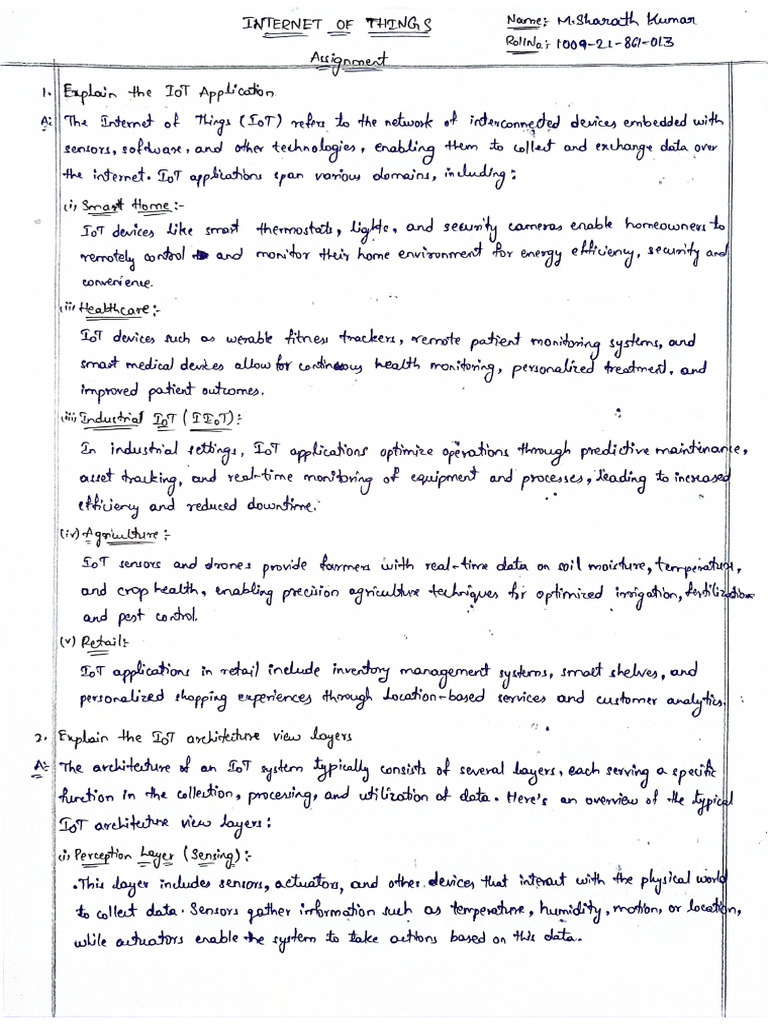 INTERNET OF THINGS
Name:- M.Sharath Kumar
RollNo:- 1009-21-861-013
Assignment
1. Explain the IoT Application
A: The Internet of Things (IoT) refers to the network of interconnected devices embedded with
sensors, software, and other technologies, enabling them to collect and exchange data over
the internet. IoT applications span various domains, including:
(i) Smart Home:-
IoT devices like smart thermostats, lights, and security cameras enable homeowners to
remotely control and monitor their home environment for energy efficiency, security and
convenience.
(ii) Healthcare:-
IoT devices such as werable fitness trackers, remote patient monitoring systems, and
smart medical devices allow for continuous health monitoring, personalized treatment, and
improved patient outcomes.
(iii) Industrial IoT (IIoT):-
In industrial settings, IoT applications optimize operations through predictive maintenance,
asset tracking, and real-time monitoring of equipment and processes, leading to increased
efficiency and reduced downtime.
(iv) Agriculture:-
IoT sensors and drones provide farmers with real-time data on soil moisture, temperature,
and crop health, enabling precision agriculture techniques for optimized irrigation, fertilization
and pest control.
(v) Retail:-
IoT applications in retail include inventory management systems, smart shelves, and
personalized shopping experiences through location-based services and customer analytics.
2. Explain the IoT architecture view layers
A: The architecture of an IoT system typically consists of several layers, each serving a specific
function in the collection, processing, and utilization of data. Here's an overview of the typical
IoT architecture view layers:
(i) Perception Layer (Sensing):-
. This layer includes sensors, actuators, and other devices that interact with the physical world
to collect data. Sensors gather information such as temperature, humidity, motion, or location,
while actuators enable the system to take actions based on this data.